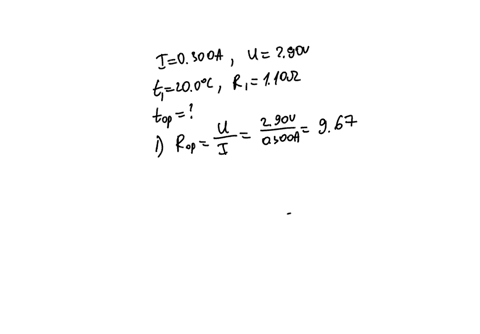 I=0.300A, U=2.90V
t₁=20.0°C, R₁=1.10Ω
t_op=?
1) R_op = U/I = 2.90V/0.300A = 9.67